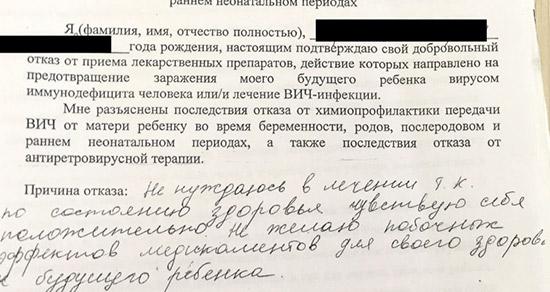 раннем неонатальном периодах
Я,(фамилия, имя, отчество полностью),
года рождения, настоящим подтверждаю свой добровольный
отказ от приема лекарственных препаратов, действие которых направлено на
предотвращение заражения моего будущего ребенка вирусом
иммунодефицита человека или/и лечение ВИЧ-инфекции.
Мне разъяснены последствия отказа от химиопрофилактики передачи
ВИЧ от матери ребенку во время беременности, родов, послеродовом и
раннем неонатальном периодах, а также последствия отказа от
антиретровирусной терапии.
Причина отказа: Не нуждаюсь в лечении т.к.
по состоянию здоровья чувствую себя
положительно. Не желаю побочных
эффектов медикаментов для своего здоров
и будущего ребенка.